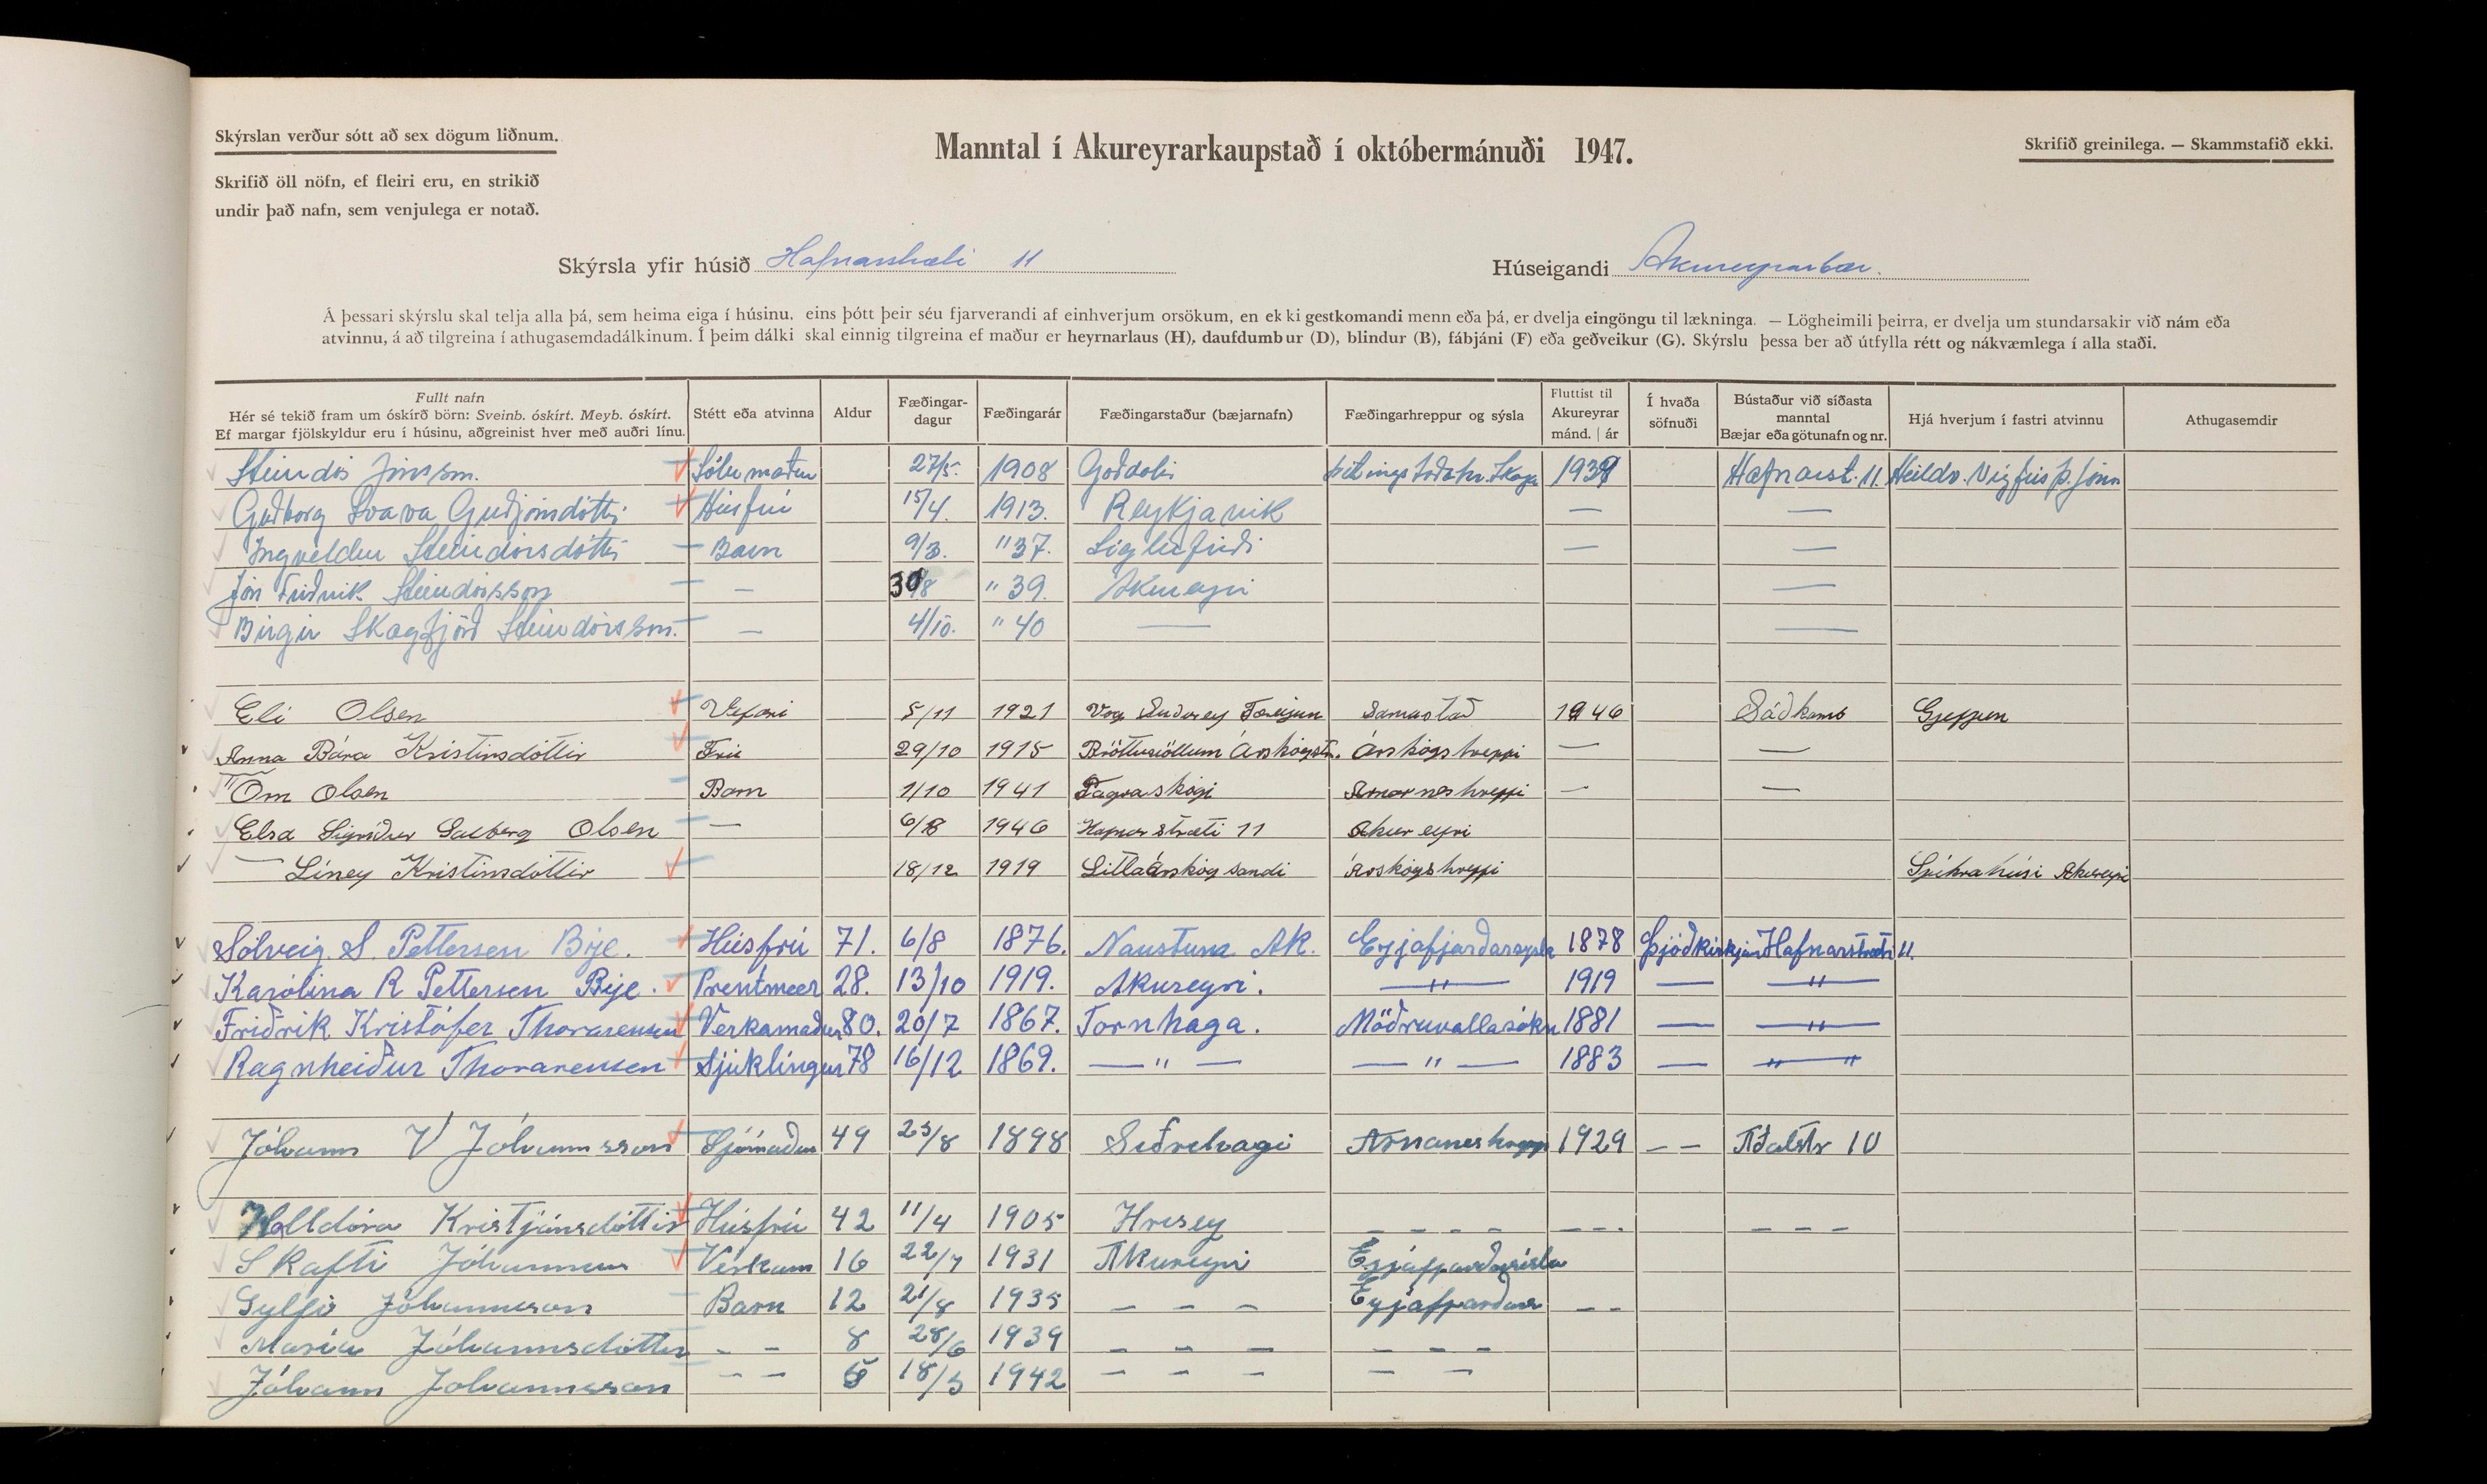 Skýrslan verður sótt að sex dögum liðnum.
Manntal í Akureyrarkaupstað í októbermánuði 1947.
Skrifið greinilega. — Skammstafið ekki.
Skrifið öll nöfn, ef fleiri eru, en strikið
undir það nafn, sem venjulega er notað.
Skýrsla yfir húsið Hafnarstræti 11 Húseigandi Akureyrarbær.
Á þessari skýrslu skal telja alla þá, sem heima eiga í húsinu, eins þótt þeir séu fjarverandi af einhverjum orsökum, en ekki gestkomandi menn eða þá, er dvelja eingöngu til lækninga. — Lögheimili þeirra, er dvelja um stundarsakir við nám eða
atvinnu, á að tilgreina í athugasemdadálkinum. Í þeim dálki skal einnig tilgreina ef maður er heyrnarlaus (H), daufdumbur (D), blindur (B), fábjáni (F) eða geðveikur (G). Skýrslu þessa ber að útfylla rétt og nákvæmlega í alla staði.
Fullt nafn
Hér sé tekið fram um óskírð börn: Sveinb. óskírt. Meyb. óskírt.
Ef margar fjölskyldur eru í húsinu, aðgreinist hver með auðri línu.
Stétt eða atvinna
Aldur
Fæðingar-
dagur
Fæðingarár
Fæðingarstaður (bæjarnafn)
Fæðingarhreppur og sýsla
Fluttist til
Akureyrar
mánd. | ár
Í hvaða
söfnuði
Bústaður við síðasta
manntal
Bæjar eða götunafn og nr.
Hjá hverjum í fastri atvinnu
Athugasemdir
Steindór Jónsson. Sölumaður 27/5. 1908 Goðdölum 1939 Hafnarst. 11. Heildv. Vigfús Þ. Jóns
Guðborg Svava Guðjónsdóttir Húsfrú 15/4. 1913. Reykjavik — —
Ingveldur Steindórsdóttir — Barn 9/3. "37. Siglufirði — —
Jón Friðrik Steindórsson — 30/8 "39. Akureyri —
Birgir Skagfjörð Steindórsson. — 4/10. "40 — —
Eli Olsen Vefari 5/11 1921 Vog Suðurey Færeyjum 1946 Gefjun
Anna Bára Kristinsdóttir Frú 29/10 1915 Árskógsstr. Árskógshreppi — —
Örn Olsen Barn 1/10 1941 Fagraskógi Arnarneshreppi — —
Elsa Sigríður Salberg Olsen — 6/8 1946 Hafnarstræti 11 Akureyri
— Líney Kristinsdóttir 18/12 1919 LitlaÁrskógsandi Árskógshreppi Sjúkrahúsi Akureyri
Sólveig. S. Pettersen Bije. Húsfrú 71. 6/8 1876. Naustum Ak. Eyjafjarðarsýsla 1878 Þjóðkirkjan Hafnarstræti 11.
Karólína R Pettersen Bije. Prentmeer 28. 13/10 1919. Akureyri. —"— 1919 — —"—
Friðrik Kristófer Thorarensen Verkamaður 80. 20/7 1867. Fornhaga. Möðruvallasókn 1881 — —"—
Ragnheiður Thorarensen Sjúklingur 78 16/12 1869. — " — — " — 1883 — " — "
Jóhann V Jóhannsson Sjómaður 49 23/8 1898 Siðrehagi Arnaneshrepp 1929 — — Aðalstr 10
Halldóra Kristjánsdóttir Húsfrú 42 11/4 1905 Hrisey — — — — — — — — — —
Skafti Jóhannsson Verkam 16 22/7 1931 Akureyri Eyjafjarðarsísla
Gylfi Jóhannsson Barn 12 21/8 1935 — — — Eyjafjarðar — —
María Jóhannsdóttir — — 8 28/6 1939 — — — — — —
Jóhann Jóhannsson — — 5 18/5 1942 — — — — —